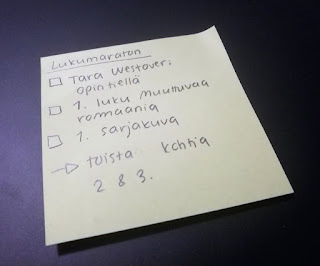 Lukumaraton
Tara Westover:
opintiellä
1. luku muuttuvaa
romaania
1. sarjakuva
→ toista kohtia
2 & 3.